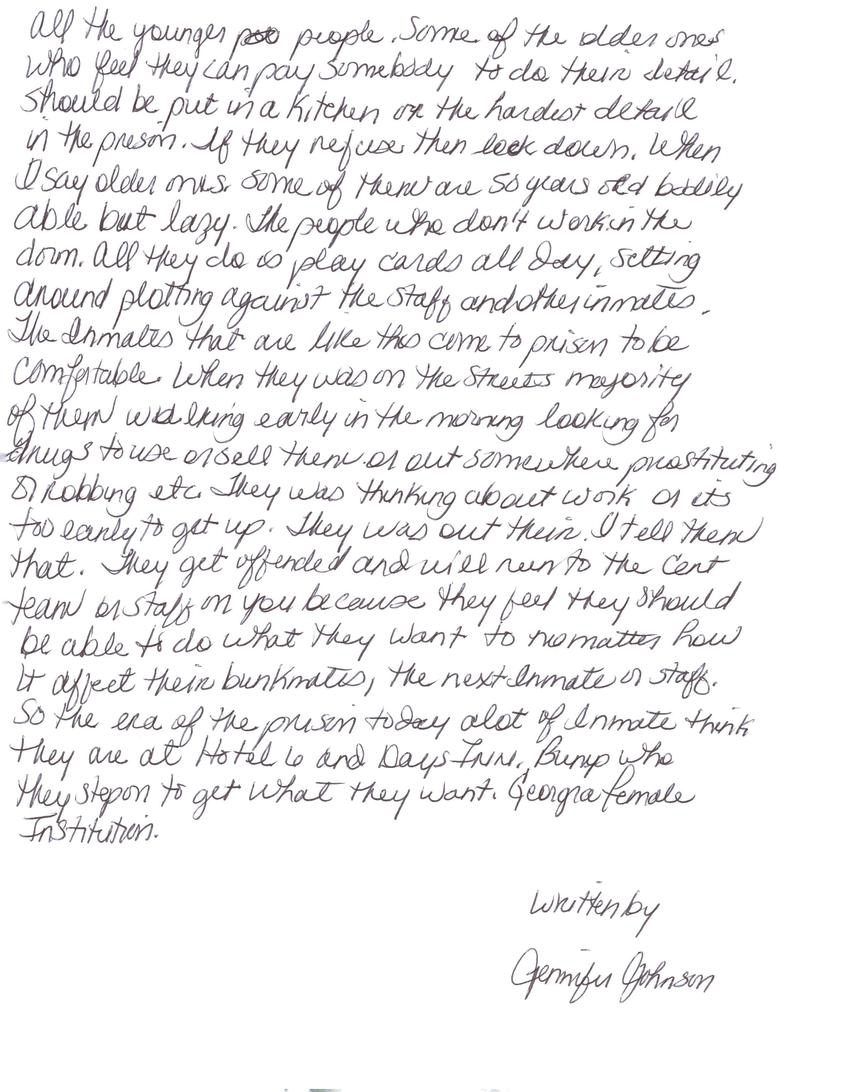 All the younger people. Some of the older ones
who feel they can pay somebody to do their detail.
Should be put in a kitchen or the hardest detail
in the preson. If they refuse then lock down. When
I say older ones. Some of them are 50 years old bodily
able but lazy. The people who don't work in the
dorm. All they do is play cards all day, setting
around plotting against the staff and other inmates.
The Inmates that are like this come to prison to be
comfortable. When they was on the streets majority
of them walking early in the morning looking for
drugs to use or sell them or out somewhere prostituting
or robbing etc. They was thinking about work or its
too early to get up. They was out their. I tell them
that. They get offended and will run to the Cert
team or staff on you because they feel they should
be able to do what they want to nomatter how
it affect their bunkmates, the next Inmate or staff.
So the era of the prison today alot of Inmate think
they are at Hotel 6 and Days Inn. Bump who
they step on to get what they want. Georgia female
Institution.
Written by
Jennifer Johnson